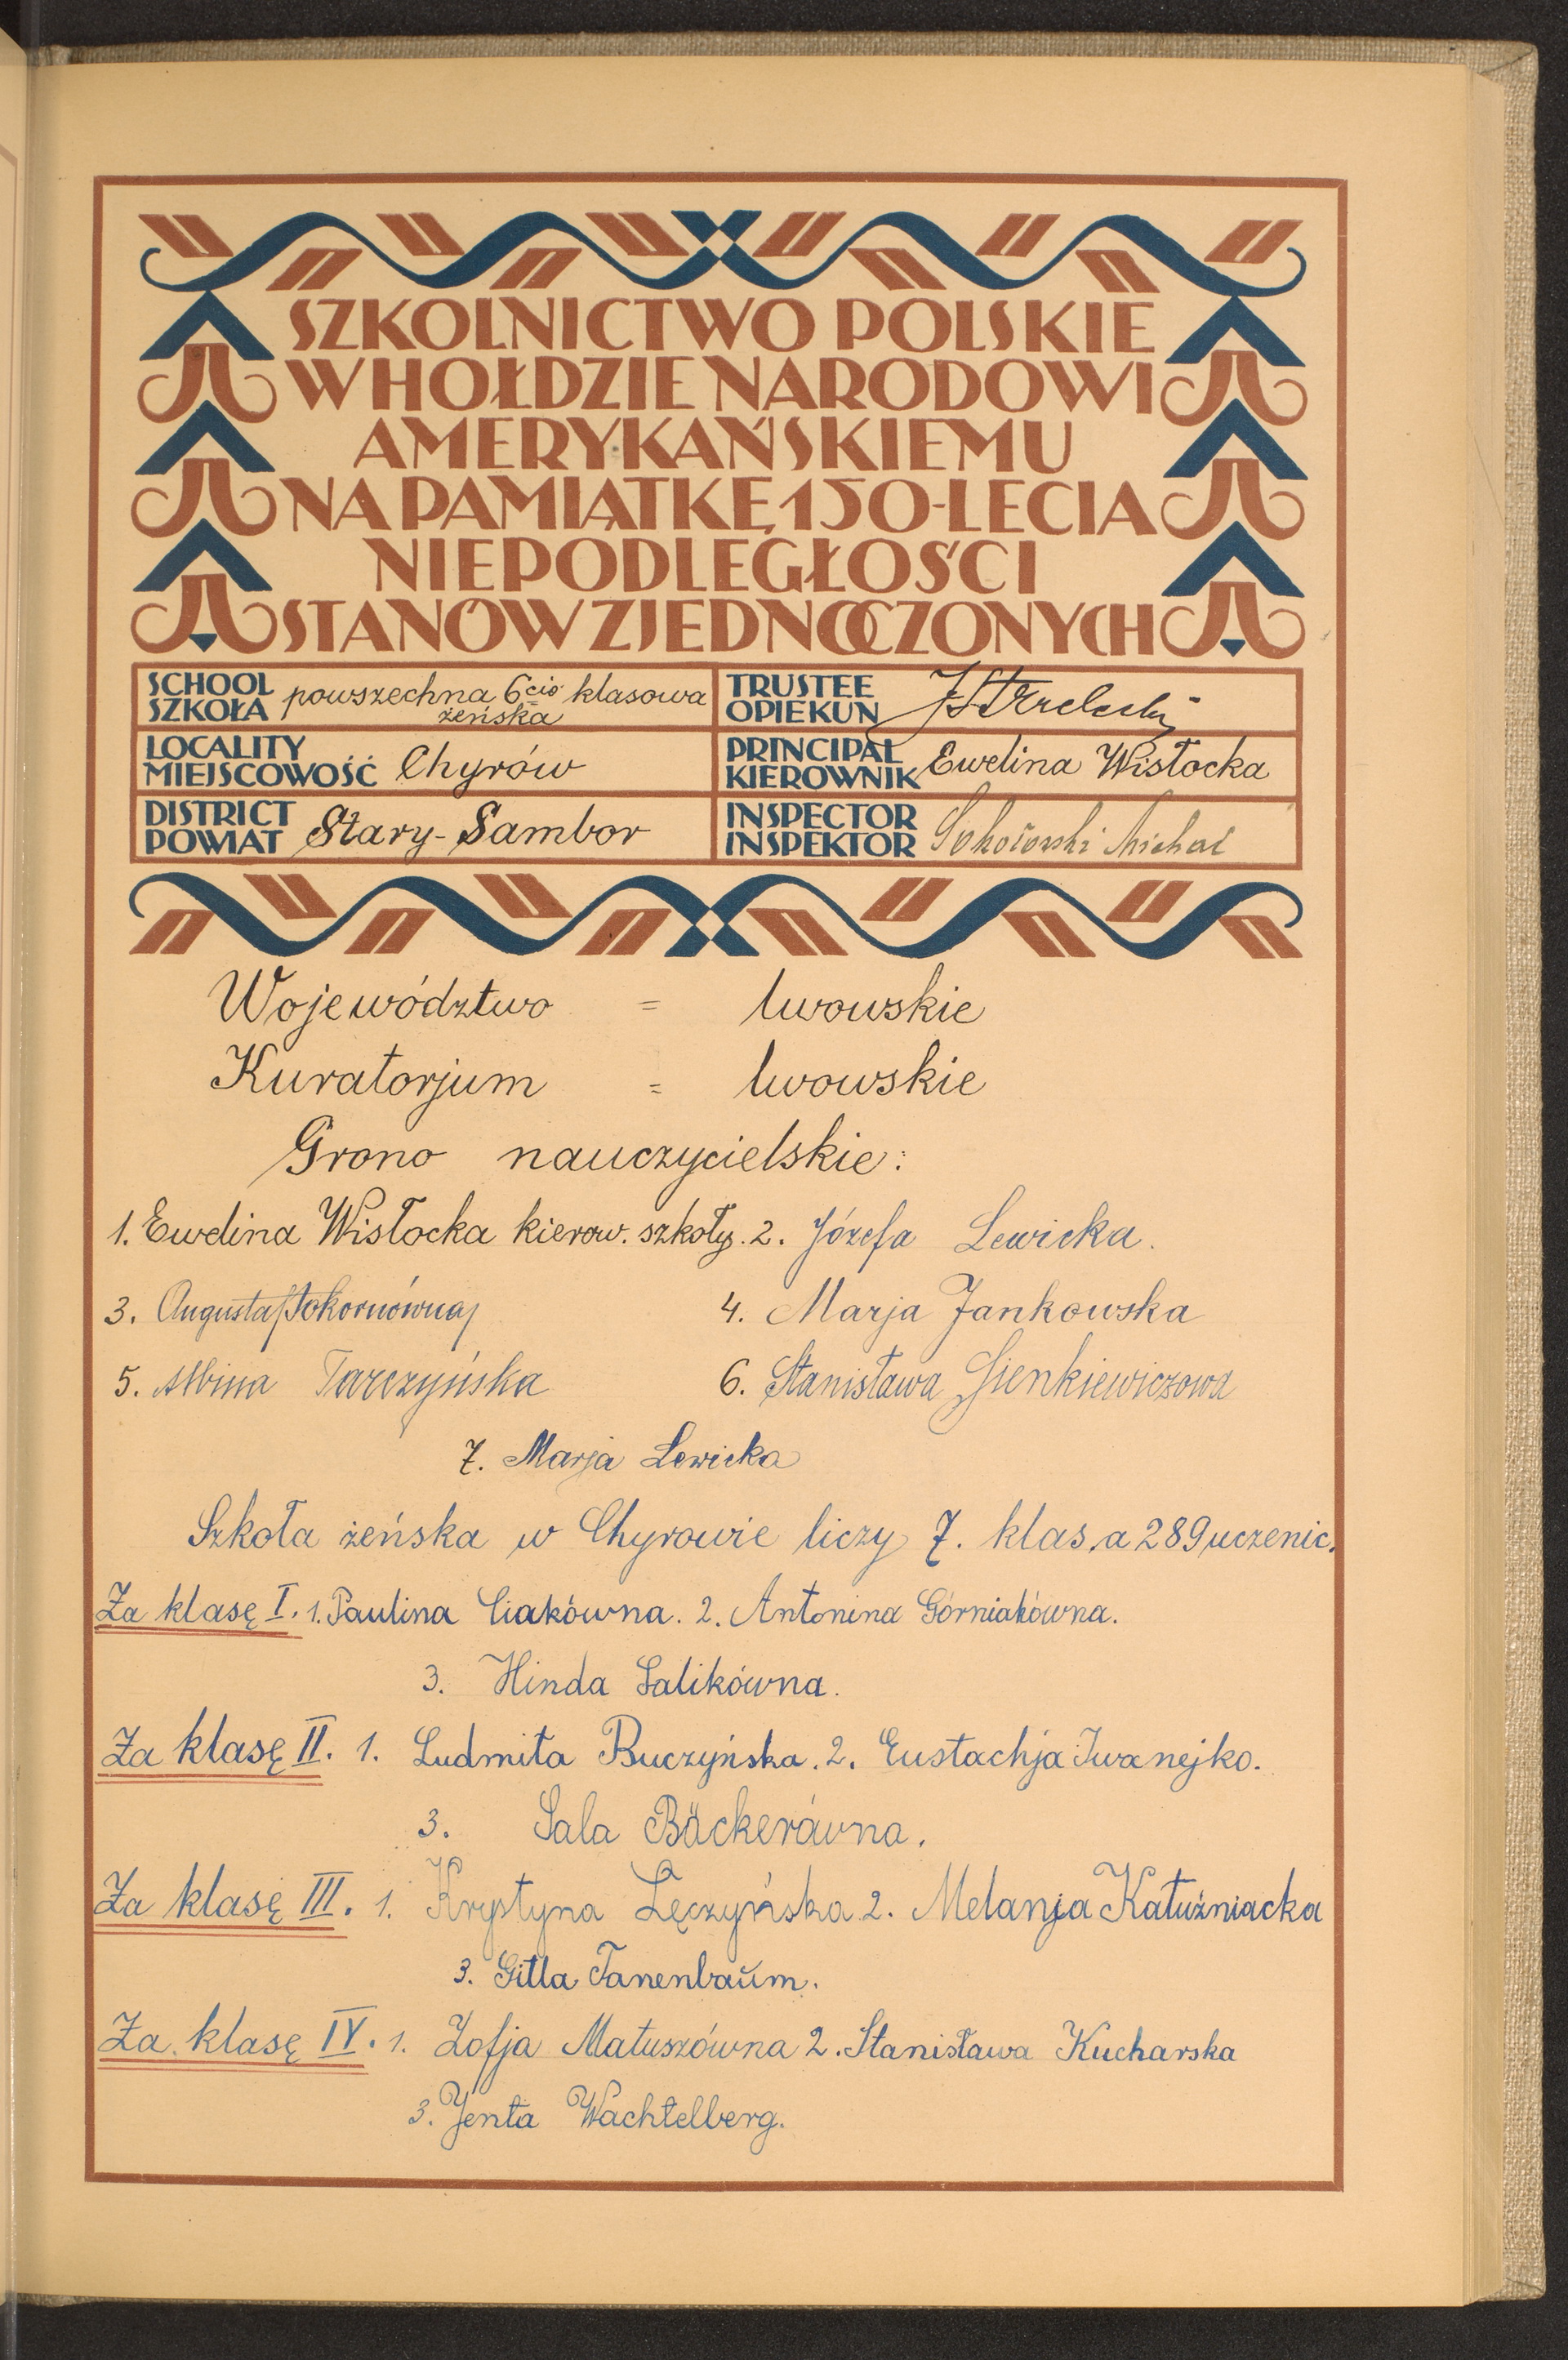 SZKOLNICTWO POLSKIE
W HOŁDZIE NARODOWI
AMERYKAŃSKIEMU
NA PAMIĄTKĘ 150-LECIA
NIEPODLEGŁOŚCI
STANÓW ZJEDNOCZONYCH
SCHOOL
SZKOŁA powszechna 6cio klasowa
żeńska
TRUSTEE
OPIEKUN JStrzelecki
LOCALITY
MIEJSCOWOŚĆ Chyrów
PRINCIPAL
KIEROWNIK Ewelina Wisłocka
DISTRICT
POWIAT Stary-Sambor
INSPECTOR
INSPEKTOR Sokołowski Michał
Województwo = lwowskie
Kuratorjum = lwowskie
Grono nauczycielskie:
1. Ewelina Wisłocka kierow. szkoły. 2. Józefa Lewicka.
3. Augusta Pokornówna 4. Marja Jankowska
5. Albina Tarczyńska 6. Stanisława Sienkiewiczowa
7. Marja Lewicka
Szkoła żeńska w Chyrowie liczy 7. klas, a 289 uczenic.
Za klasę I. 1. Paulina Ciakówna. 2. Antonina Górniakówna.
3. Hinda Salikówna.
Za klasę II. 1. Ludmiła Buczyńska. 2. Eustachja Iwanejko.
3. Sala Bäckerówna.
Za klasę III. 1. Krystyna Łęczyńska 2. Melanja Kałużniacka
3. Gitla Tanenbaŭm.
Za klasę IV. 1. Zofja Matuszówna 2. Stanisława Kucharska
3. Jenta Wachtelberg.